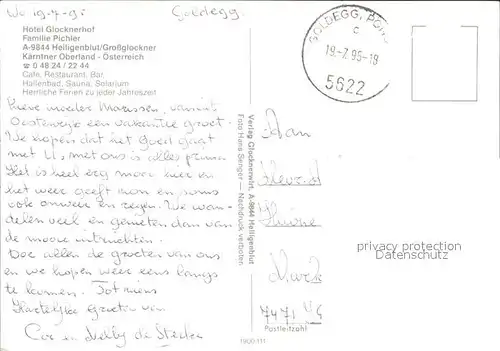 Wo 19-7-95 Goldegg.
Hotel Glocknerhof
Familie Pichler
A-9844 Heiligenblut/Großglockner
Kärntner Oberland - Österreich
☎ 0 48 24 / 22 44
Café, Restaurant, Bar,
Hallenbad, Sauna, Solarium
Herrliche Ferien zu jeder Jahreszeit
GOLDEGG, PONG
c
19.-7.95-19
5622
Lieve moeder Marissen, vanuit
Oostenrijk een vakantie groet.
We hopen dat het Goed gaat
met U, met ons is alles prima.
Het is heel erg mooi hier en
het weer geeft zon en soms
ook onweer en regen. We wan-
delen veel en genieten dan van
de mooie uitzichten.
Doe allen de groeten van ons
en we hopen weer eens langs
te komen. Tot ziens
Hartelijke Groeten van
Cor en Nelly de
Verlag Glocknerwirt, A-9844 Heiligenblut
Foto Hans Senger — Nachdruck verboten
Aan
7471
Postleitzahl
1900/111
privacy protection
Datenschutz